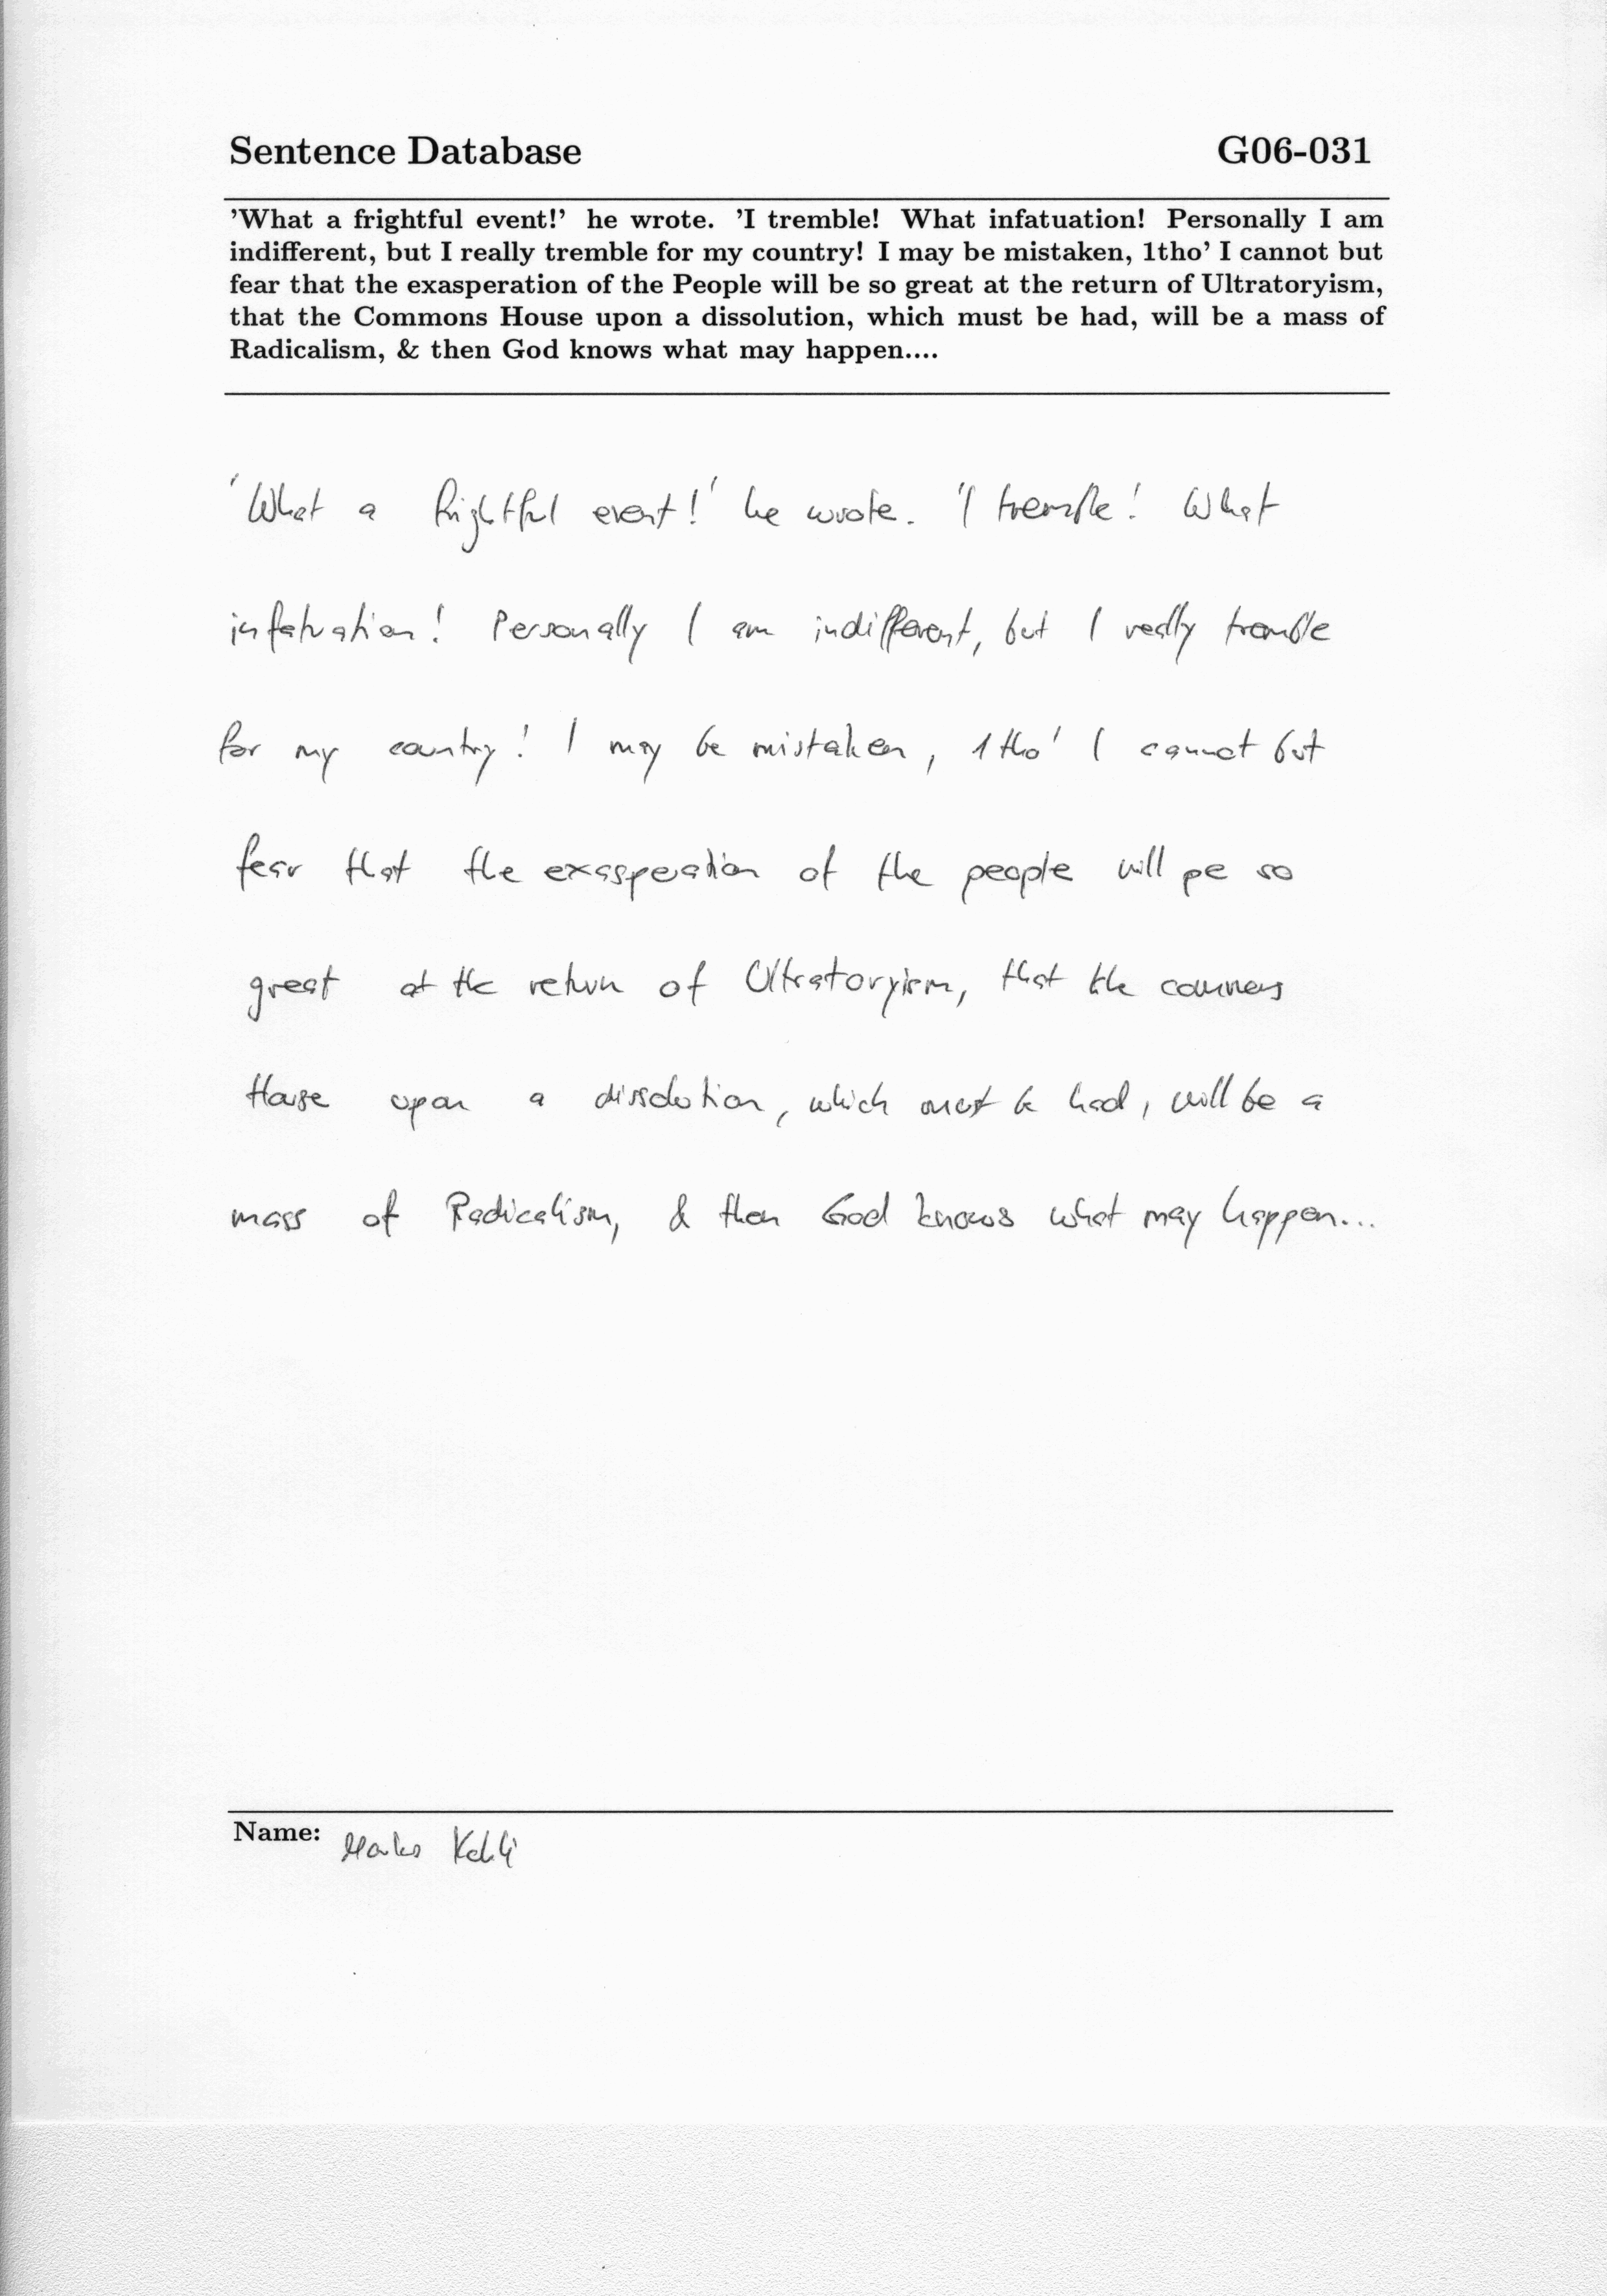 Sentence Database G06-031
'What a frightful event!' he wrote. 'I tremble! What infatuation! Personally I am
indifferent, but I really tremble for my country! I may be mistaken, 1tho' I cannot but
fear that the exasperation of the People will be so great at the return of Ultratoryism,
that the Commons House upon a dissolution, which must be had, will be a mass of
Radicalism, & then God knows what may happen....
'What a frightful event!' he wrote. 'I tremble! What
infatuation! Personally I am indifferent, but I really tremble
for my country! I may be mistaken, 1tho' I cannot but
fear that the exasperation of the people will pe so
great at the return of Ultratoryism, that the commons
House upon a dissolution, which must be had, will be a
mass of Radicalism, & then God knows what may happen...
Name: